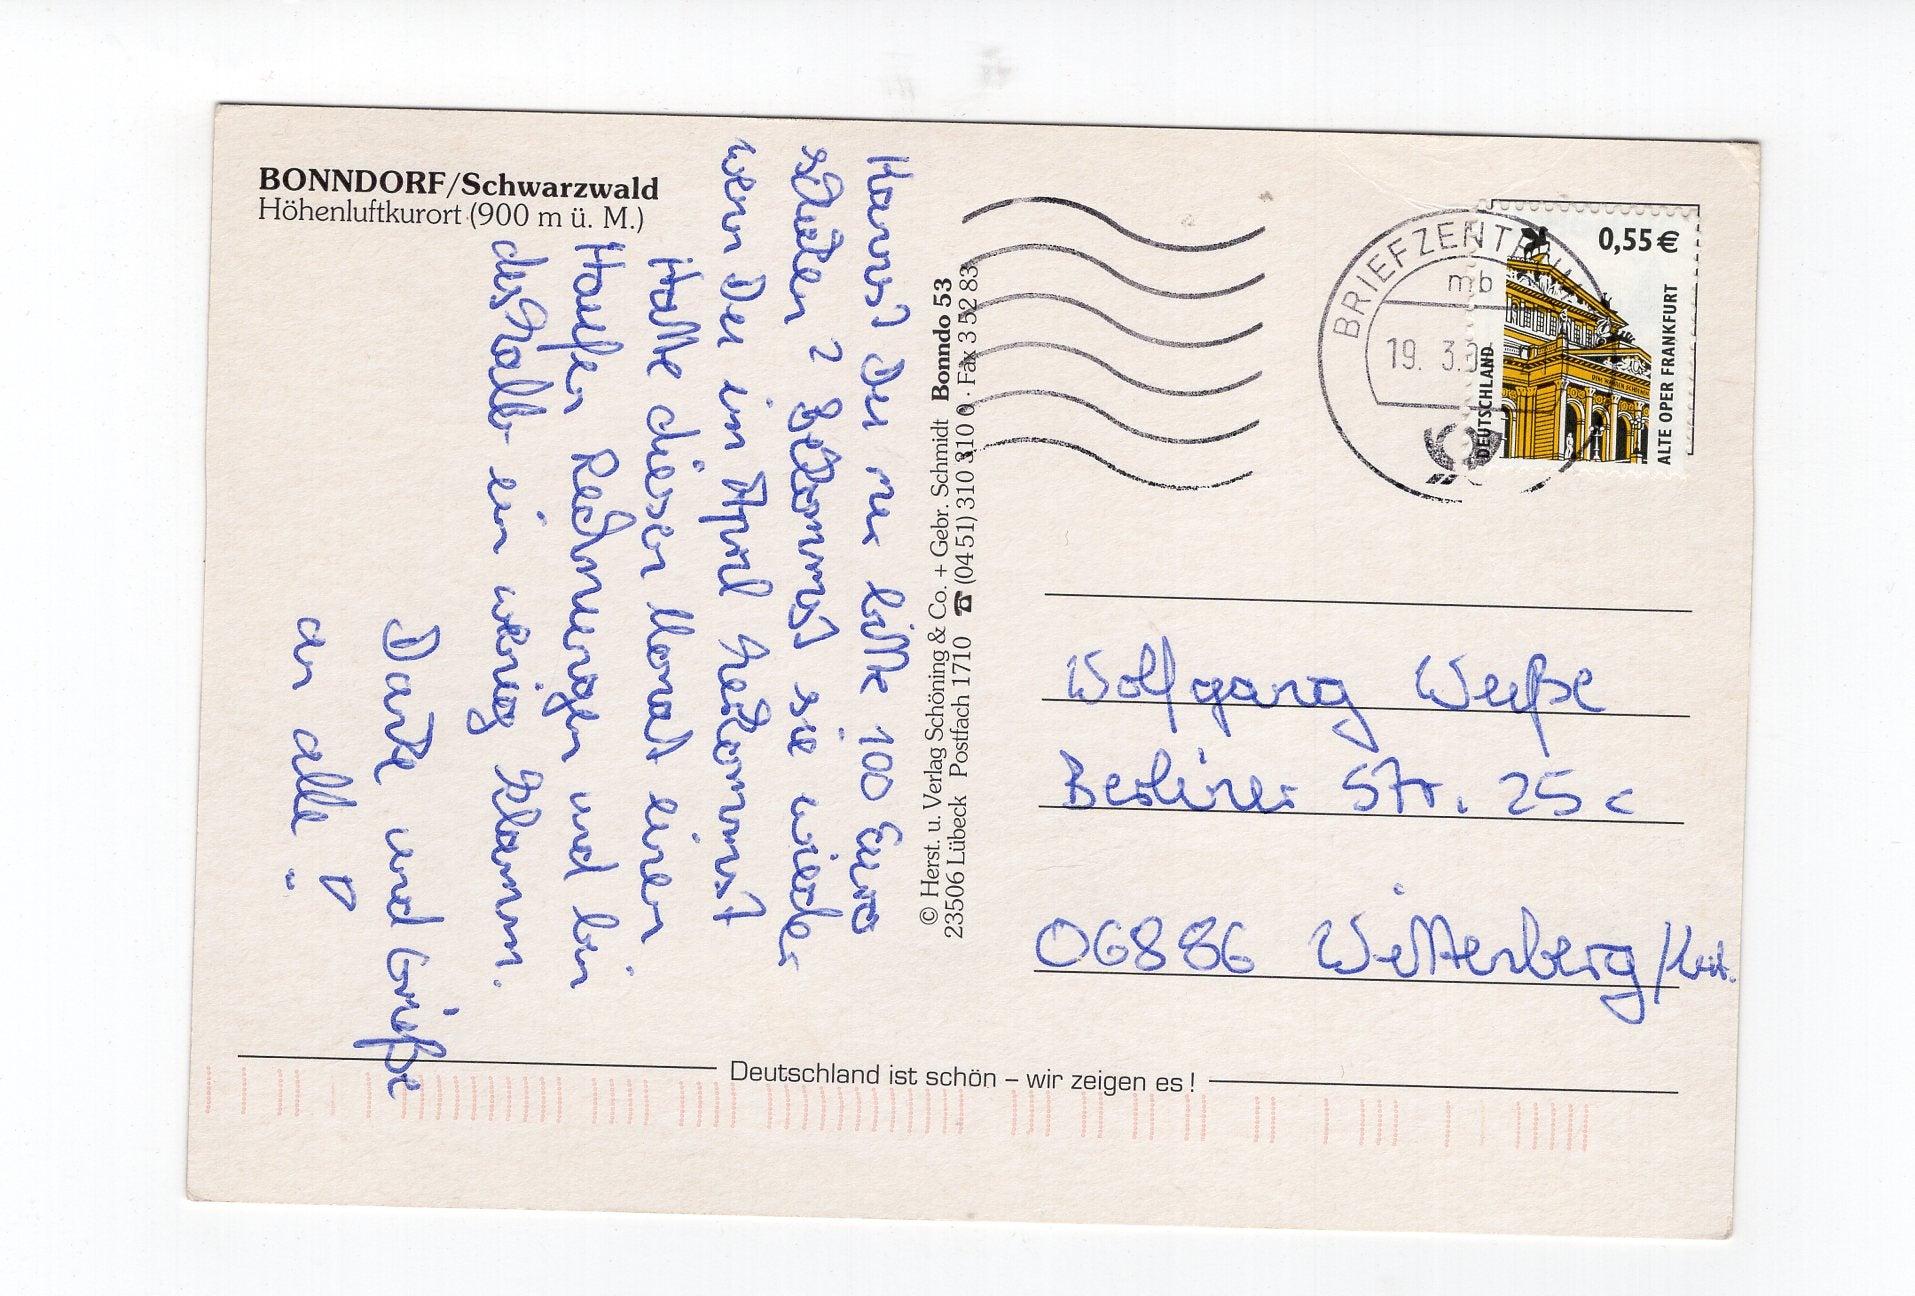 BONNDORF/Schwarzwald
Höhenluftkurort (900 m ü. M.)
Kannst Du mir bitte 100 Euro
schicken? Bekommst sie wieder
wenn Du im April herkommst
Hatte diesen Monat einen
Haufen Rechnungen und bin
deshalb ein wenig klamm.
Danke und Grüße
an alle!
© Herst. u. Verlag Schöning & Co. + Gebr. Schmidt Bonndo 53
23506 Lübeck Postfach 1710 ☎ (04 51) 310 310 · Fax 3 52 83
BRIEFZENTRUM
mb
19. 3.
0,55 €
DEUTSCHLAND
ALTE OPER FRANKFURT
Wolfgang Weiße
Berliner Str. 25c
06886 Wittenberg/
Deutschland ist schön – wir zeigen es!